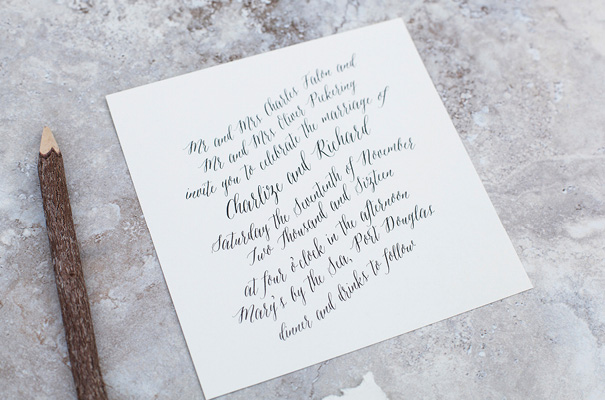 Mr and Mrs Charles Falon and
Mr and Mrs Oliver Pickering
invite you to celebrate the marriage of
Charlize and Richard
Saturday the Seventeenth of November
Two Thousand and Sixteen
at four o'clock in the afternoon
Mary's by the Sea, Port Douglas
dinner and drinks to follow